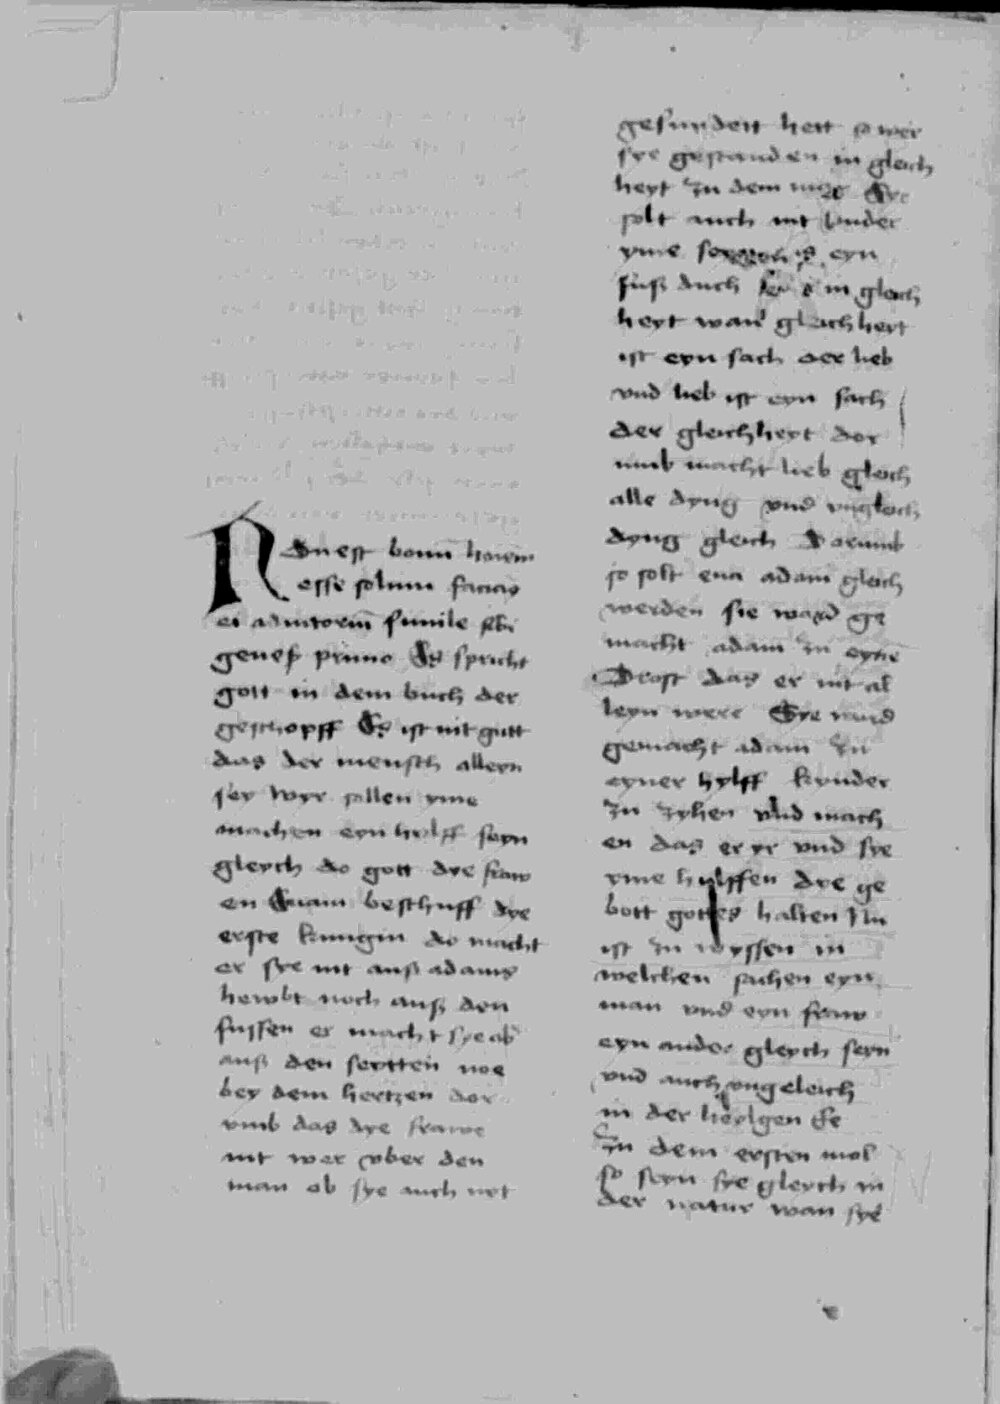 Non est bonum hominem
esse solum facias
ei adiutorem simile sibi
genes primo Es spricht
gott in dem buch der
geschopff Es ist nit gutt
das der mensch alleyn
sey Wyr sollen yme
machen eyn hylff seyn
gleych do gott dye fraw
en Evam beschuff dye
erste kunigin do macht
er sye nit auß adams
hewbt noch auß den
fussen er macht sye ab
auß den seytten noe
bey dem hertzen dor
vmb das dye frawe
nit wer vber den
man ob sye auch nit
gesundett hett so wer
sye gestanden in gleich
heyt zu dem Sye
solt auch nit vnder
yme eyn
fuß auch in gleich
heyt wan gleichheyt
ist eyn sach der lieb
vnd lieb ist eyn sach
der gleichheyt dor
vmb macht lieb gleich
alle dyng vnd vngleich
dyng gleich Dorumb
so solt eua adam gleich
werden sie ward ge
macht adam zu eyne
Drost das er nit al
leyn were Sye ward
gemacht adam zu
eyner hylff kynder
zu zyhen vnd mach
en das er yr vnd sye
yme hulffen dye ge
bott gottes halten Nu
ist zu wyssen in
welchen sachen eyn
man vnd eyn fraw
eyn ander gleych seyn
vnd auch vngeleich
in der heylgen Ee
Zu dem ersten mol
so seyn sye gleych in
der natur wan sye